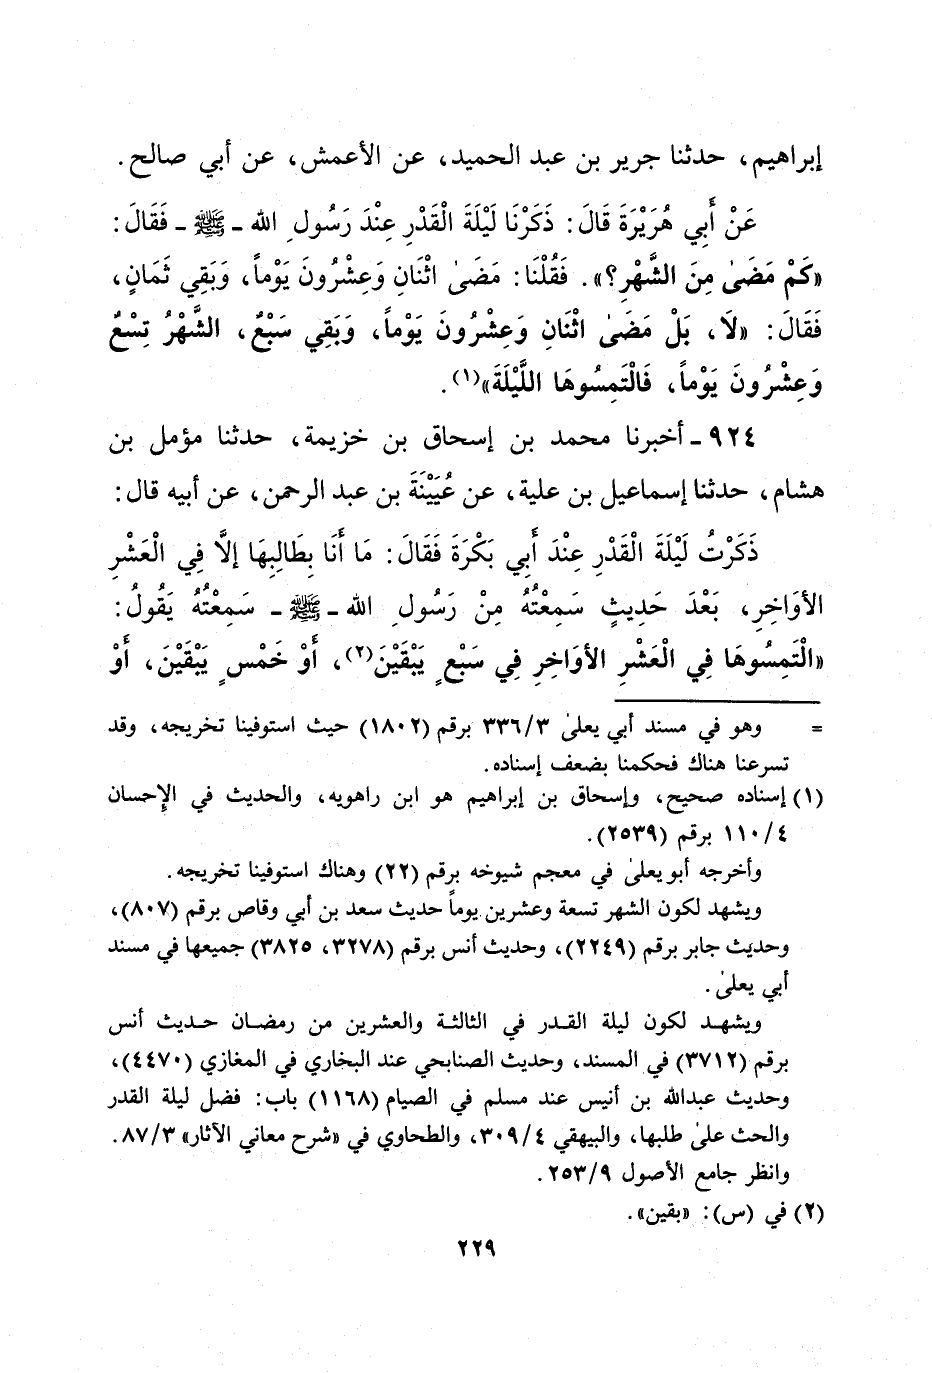 إبراهيم، حدثنا جرير بن عبد الحميد، عن الأعمش، عن أبي صالح.
عَنْ أَبِي هُرَيْرَةَ قَالَ: ذَكَرْنَا لَيْلَةَ الْقَدْرِ عِنْدَ رَسُولِ الله - ﷺ - فَقَالَ:
«كَمْ مَضَىٰ مِنَ الشَّهْرِ؟». فَقُلْنَا: مَضَىٰ اثْنَانِ وَعِشْرُونَ يَوْماً، وَبَقِي ثَمَانٍ،
فَقَالَ: «لَا، بَلْ مَضَىٰ اثْنَانِ وَعِشْرُونَ يَوْماً، وَبَقِي سَبْعٌ، الشَّهْرُ تِسْعٌ
وَعِشْرُونَ يَوْماً، فَالْتَمِسُوهَا اللَّيْلَةَ»(١).
٩٢٤ - أخبرنا محمد بن إسحاق بن خزيمة، حدثنا مؤمل بن
هشام، حدثنا إسماعيل بن علية، عن عُيَيْنَةَ بن عبد الرحمن، عن أبيه قال:
ذَكَرْتُ لَيْلَةَ الْقَدْرِ عِنْدَ أَبِي بَكْرَةَ فَقَالَ: مَا أَنَا بِطَالِبِهَا إلَّا فِي الْعَشْرِ
الأوَاخِرِ، بَعْدَ حَدِيثٍ سَمِعْتُهُ مِنْ رَسُولِ الله - ﷺ - سَمِعْتُهُ يَقُولُ:
«الْتَمِسُوهَا فِي الْعَشْرِ الأوَاخِرِ فِي سَبْعٍ يَبْقَيْنَ(٢)، أَوْ خَمْسٍ يَبْقَيْنَ، أَوْ
= وهو في مسند أبي يعلىٰ ٣/٣٣٦ برقم (١٨٠٢) حيث استوفينا تخريجه، وقد
تسرعنا هناك فحكمنا بضعف إسناده.
(١) إسناده صحيح، وإسحاق بن إبراهيم هو ابن راهويه، والحديث في الإحسان
٤/١١٠ برقم (٢٥٣٩).
وأخرجه أبو يعلىٰ في معجم شيوخه برقم (٢٢) وهناك استوفينا تخريجه.
ويشهد لكون الشهر تسعة وعشرين يوماً حديث سعد بن أبي وقاص برقم (٨٠٧)،
وحديث جابر برقم (٢٢٤٩)، وحديث أنس برقم (٣٢٧٨، ٣٨٢٥) جميعها في مسند
أبي يعلىٰ.
ويشهد لكون ليلة القدر في الثالثة والعشرين من رمضان حديث أنس
برقم (٣٧١٢) في المسند، وحديث الصنابحي عند البخاري في المغازي (٤٤٧٠)،
وحديث عبدالله بن أنيس عند مسلم في الصيام (١١٦٨) باب: فضل ليلة القدر
والحث علىٰ طلبها، والبيهقي ٤/٣٠٩، والطحاوي في «شرح معاني الآثار» ٣/٨٧.
وانظر جامع الأصول ٩/٢٥٣.
(٢) في (س): «بقين».
٢٢٩